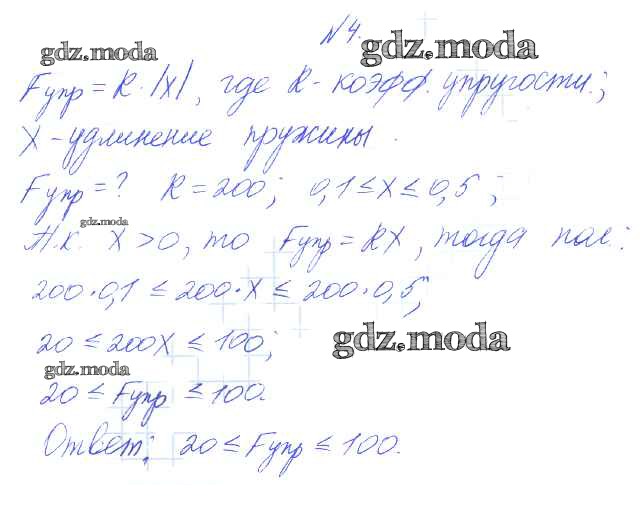 N4.
gdz.moda gdz.moda
Fупр = R·|x|, где R - коэфф. упругости;
x - удлинение пружины.
Fупр = ? R = 200; 0,1 ≤ x ≤ 0,5;
gdz.moda
Т.к. x > 0, то Fупр = Rx, тогда пол:
200·0,1 ≤ 200·x ≤ 200·0,5;
20 ≤ 200x ≤ 100;
gdz.moda
gdz.moda
20 ≤ Fупр ≤ 100.
Ответ: 20 ≤ Fупр ≤ 100.